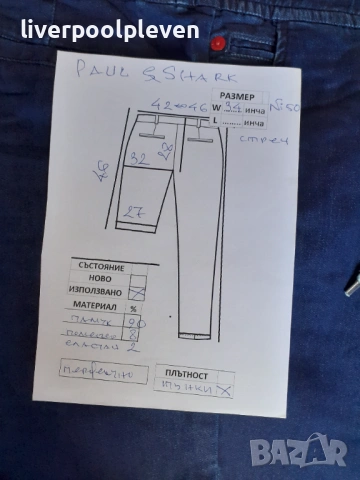 liverpoolpleven
PAUL & SHARK
РАЗМЕР
42⇔46 W 34 инча №50
L ........ инча
стреч
28
32
27
СЪСТОЯНИЕ
НОВО
ИЗПОЛЗВАНО X
МАТЕРИАЛ %
памук 90
8
еластан 2
перфектно
ПЛЪТНОСТ
тънки X
BAZAR